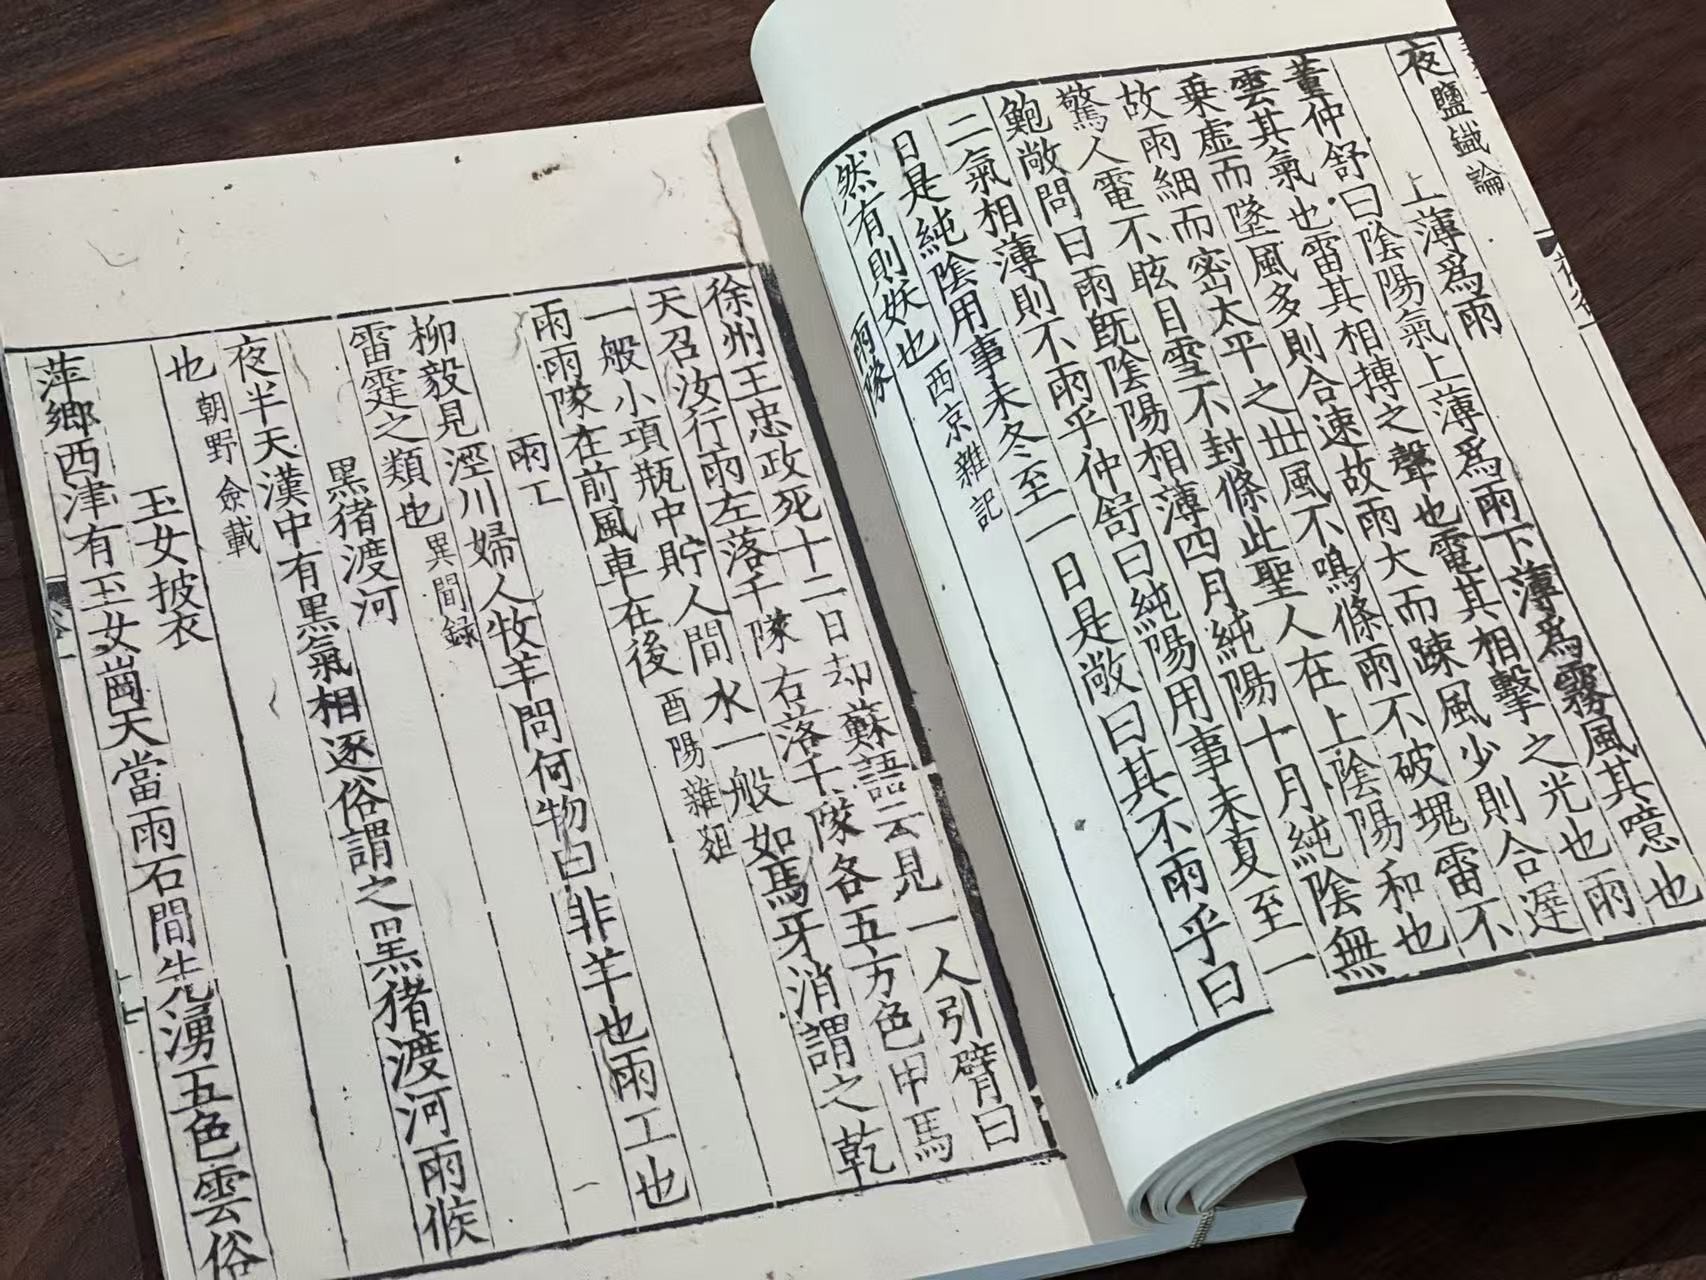 夜鹽鐵論
上薄爲雨
董仲舒曰陰陽氣上薄爲雨下薄爲霧風其噫也
雲其氣也雷其相摶之聲也電其相擊之光也雨
乗虛而墜風多則合速故雨大而踈風少則合遲
故雨細而密太平之丗風不鳴條雨不破塊雷不
驚人電不眩目雪不封條此聖人在上陰陽和也
鮑敞問曰雨旣陰陽相薄四月純陽十月純陰無
二氣相薄則不雨乎仲舒曰純陽用事未夏至一
日是純陰用事未冬至一日是敞曰其不雨乎曰
然有則妖也西京雜記
雨隊
徐州王忠政死十二日却蘇語云見一人引臂曰
天召汝行雨左落千隊右落千隊各五方色甲馬
一般小項瓶中貯人間水一般如馬牙消謂之乾
雨雨隊在前風車在後酉陽雜俎
雨工
柳毅見涇川婦人牧羊問何物曰非羊也雨工也
雷霆之類也異聞録
黒猪渡河
夜半天漢中有黒氣相逐俗謂之黒猪渡河雨候
也朝野僉載
玉女披衣
萍鄉西津有玉女崗天當雨石間先湧五色雲俗